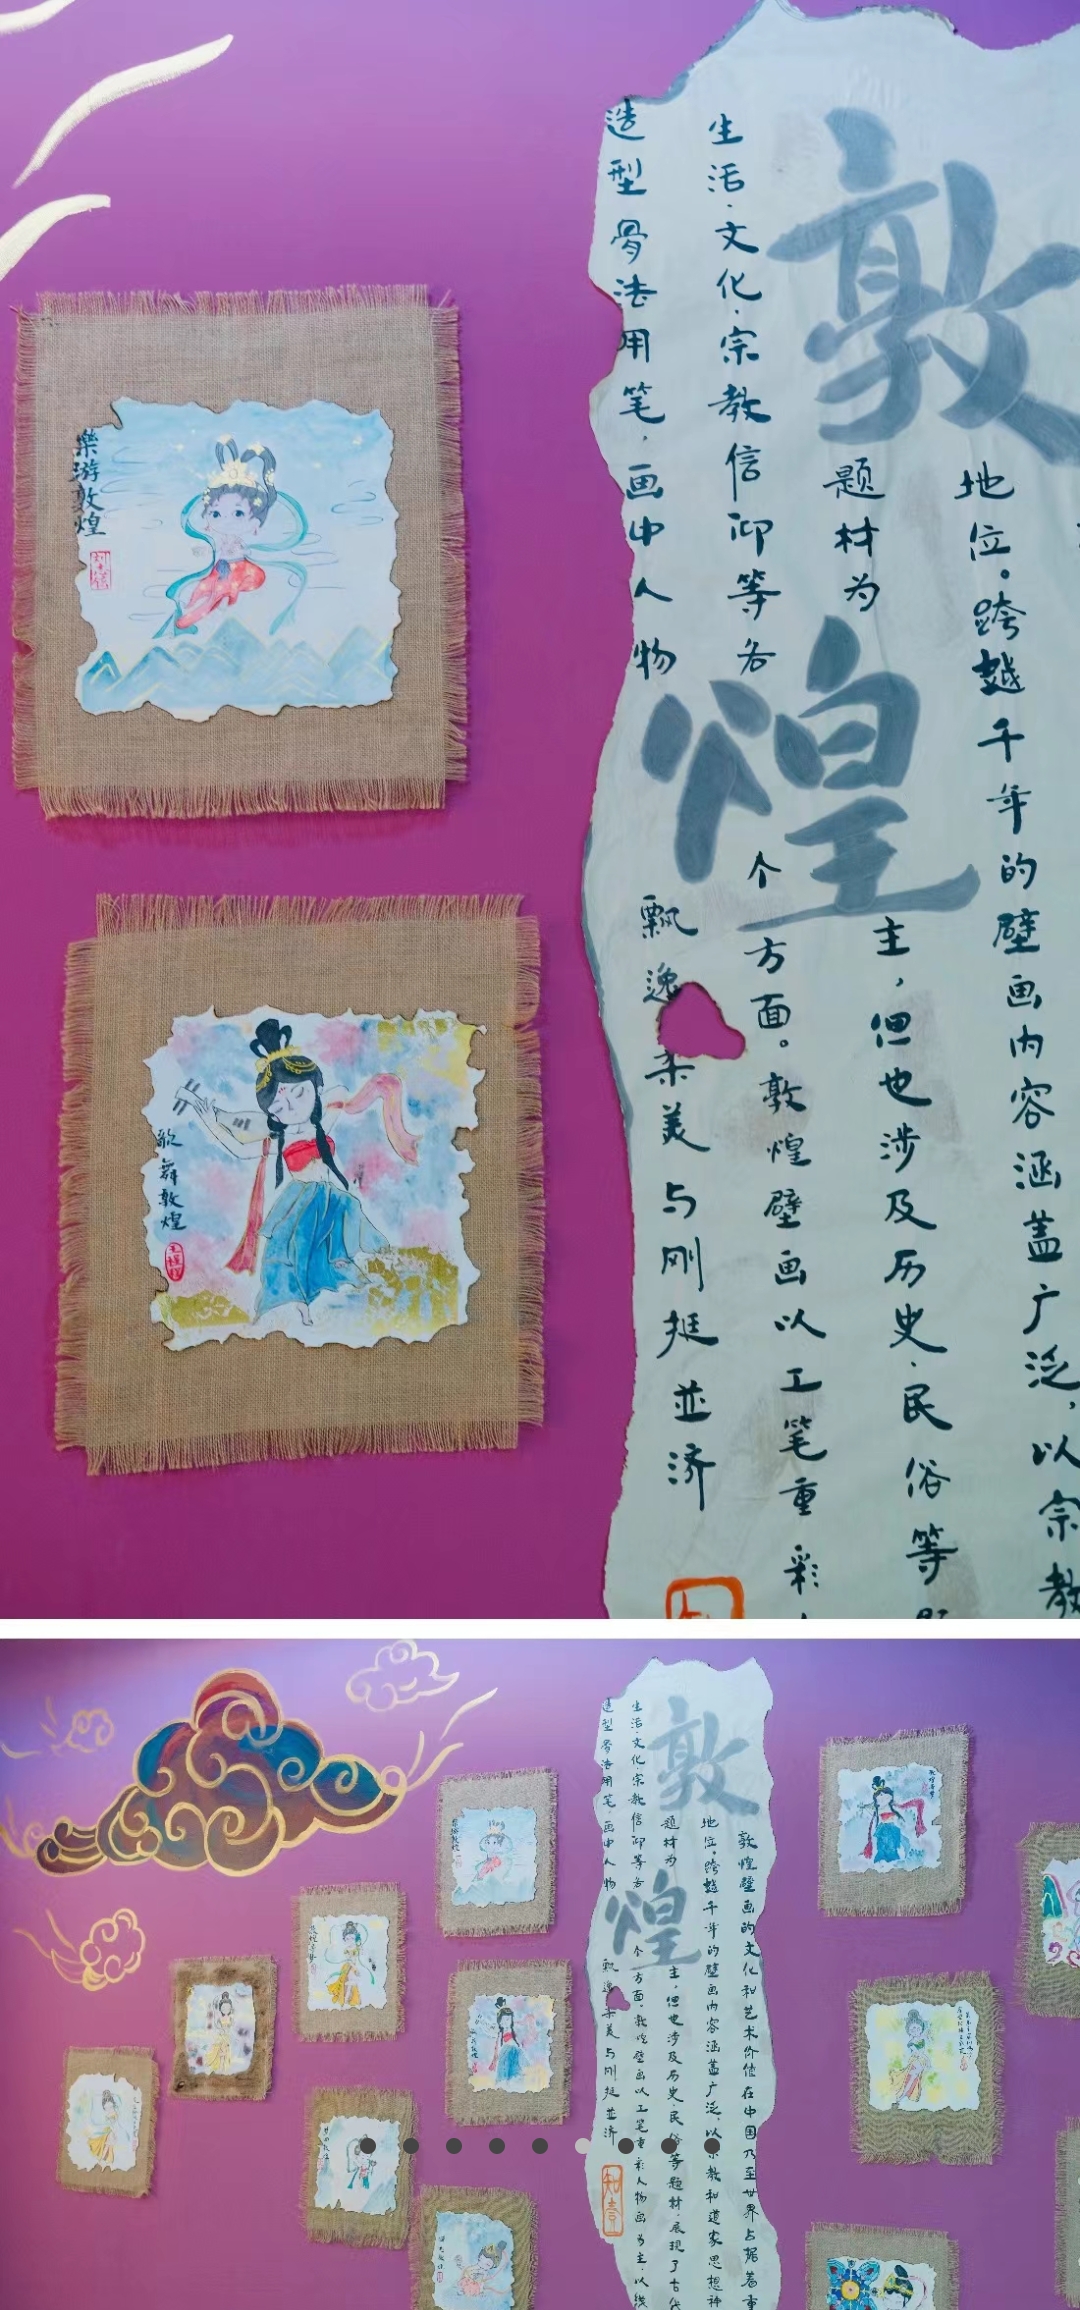 敦煌
地位。跨越千年的壁画内容涵盖广泛，以宗教
题材为主，但也涉及历史、民俗等
生活、文化、宗教信仰等各个方面。敦煌壁画以工笔重彩
造型骨法用笔，画中人物飘逸柔美与刚挺並济
樂游敦煌
歌舞敦煌
敦煌
敦煌壁画的文化和艺术价值在中国乃至世界占据着重
地位。跨越千年的壁画内容涵盖广泛，以宗教和道家思想神
题材为主，但也涉及历史、民俗等题材，展现了古代
生活、文化、宗教信仰等各个方面。敦煌壁画以工笔重彩人物画为主，以线
造型骨法用笔，画中人物飘逸柔美与刚挺並济
樂游敦煌
歌舞敦煌